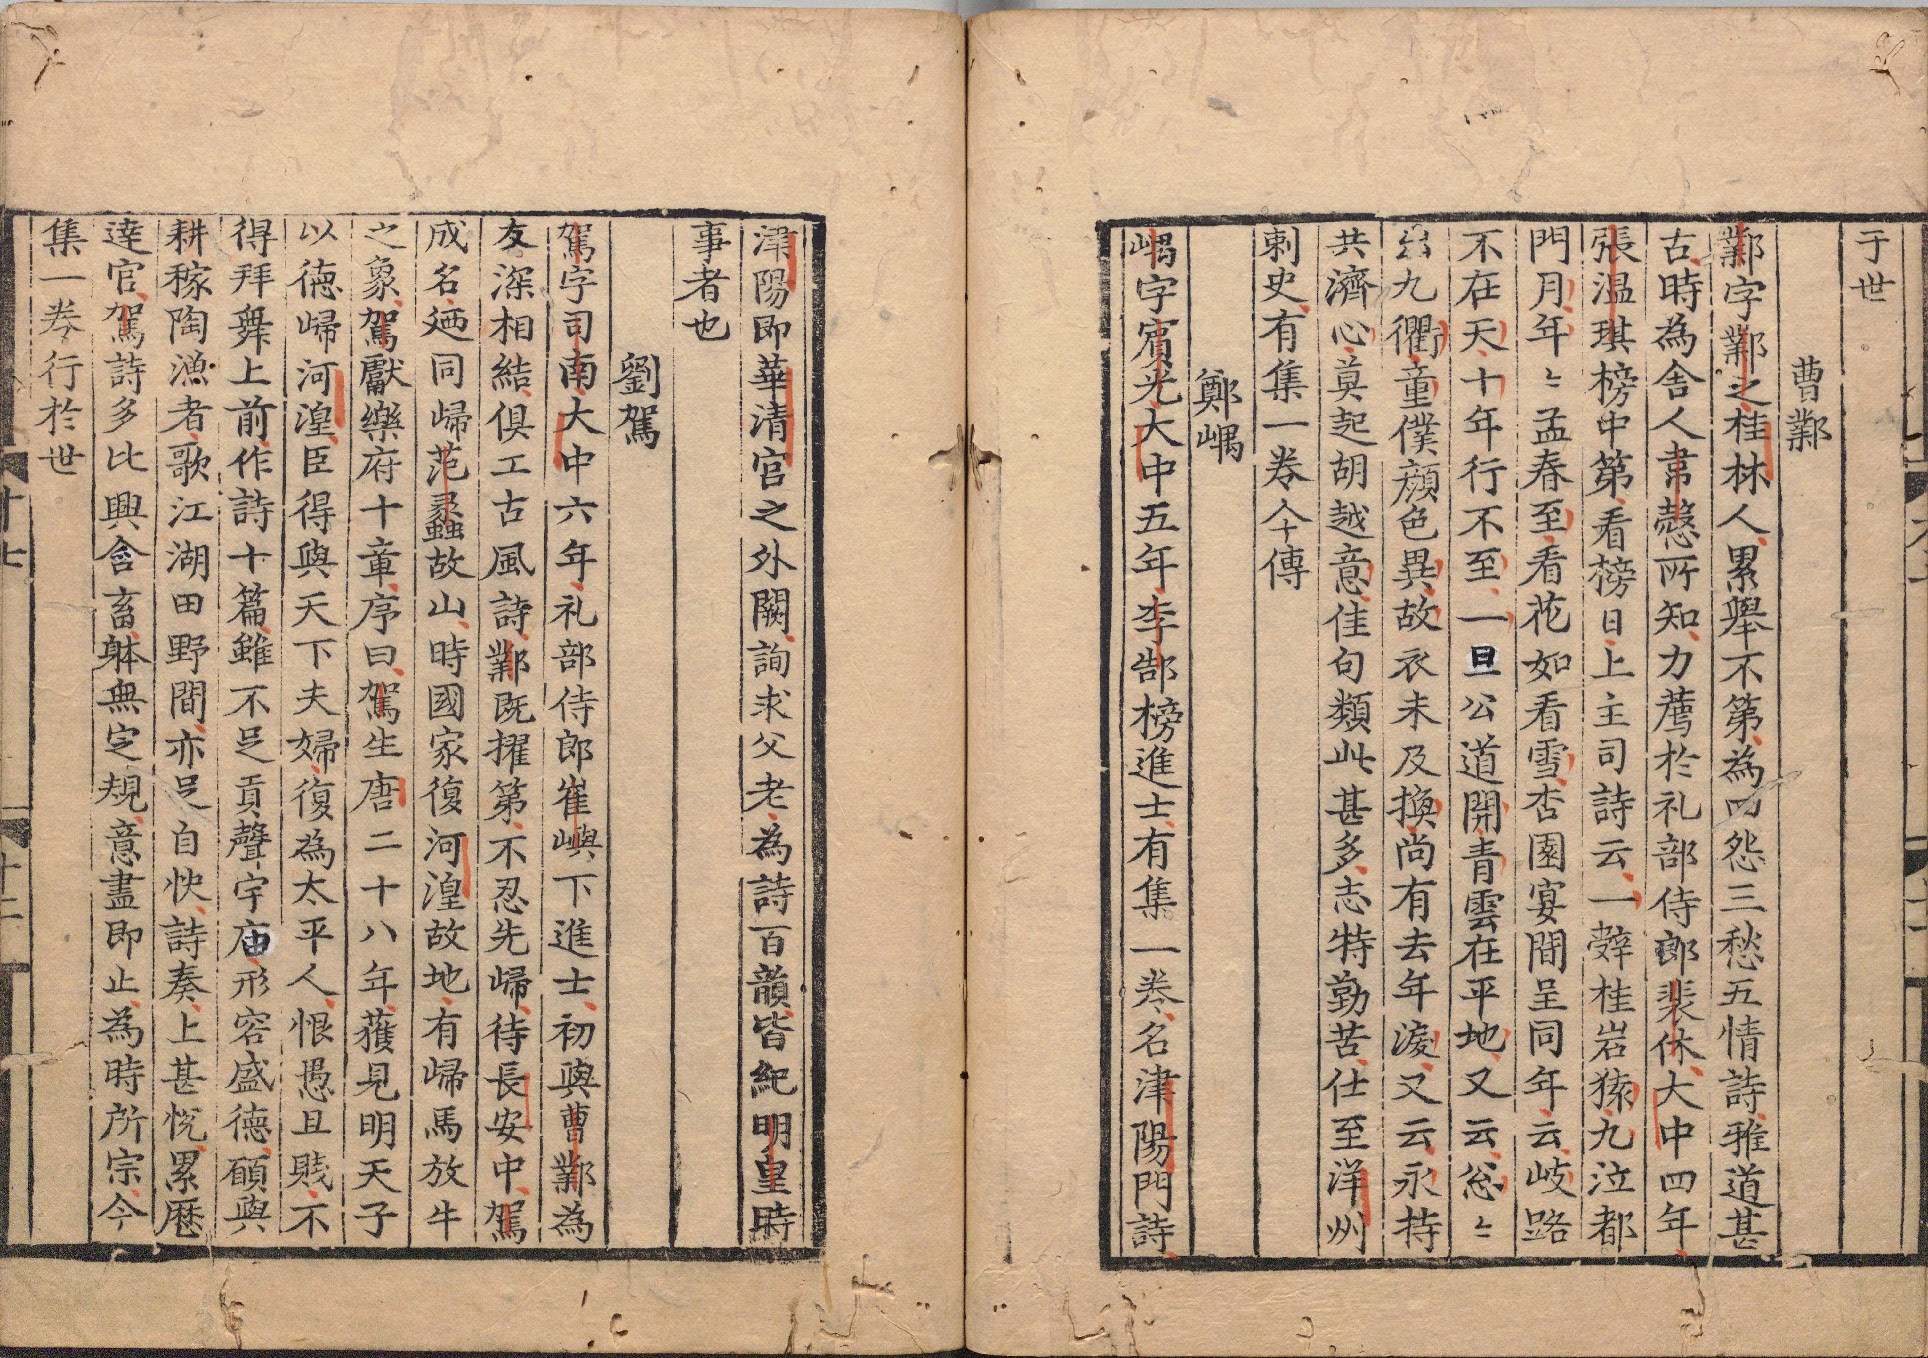 于世
曹鄴
鄴字鄴之桂林人累舉不第為四怨三愁五情詩雅道甚
古時為舍人韋慤所知力薦於礼部侍郎裴休大中四年
張温琪榜中第看榜日上主司詩云一辤桂岩猿九泣都
門月年〻孟春至看花如看雪杏園宴間呈同年云岐路
不在天十年行不至一旦公道開青雲在平地又云忩〻
出九衢童僕顔色異故衣未及換尚有去年淚又云永持
共濟心莫起胡越意佳句類此甚多志特勤苦仕至洋州
刺史有集一卷今傳
鄭嵎
嵎字賔光大中五年李郜榜進士有集一卷名津陽門詩
津陽即華清宫之外闕詢求父老為詩百韻皆紀明皇時
事者也
劉駕
駕字司南大中六年礼部侍郎崔嶼下進士初與曹鄴為
友深相結俱工古風詩鄴既擢第不忍先歸待長安中駕
成名廼同歸范蠡故山時國家復河湟故地有歸馬放牛
之象駕獻樂府十章序曰駕生唐二十八年獲見明天子
以德歸河湟臣得與天下夫婦復為太平人恨愚且賤不
得拜舞上前作詩十篇雖不足貢聲宇庙形容盛德願與
耕稼陶漁者歌江湖田野間亦足自快詩奏上甚悦累歴
達官駕詩多比興含畜躰無定規意盡即止為時所宗今
集一卷行於世
十七
十二